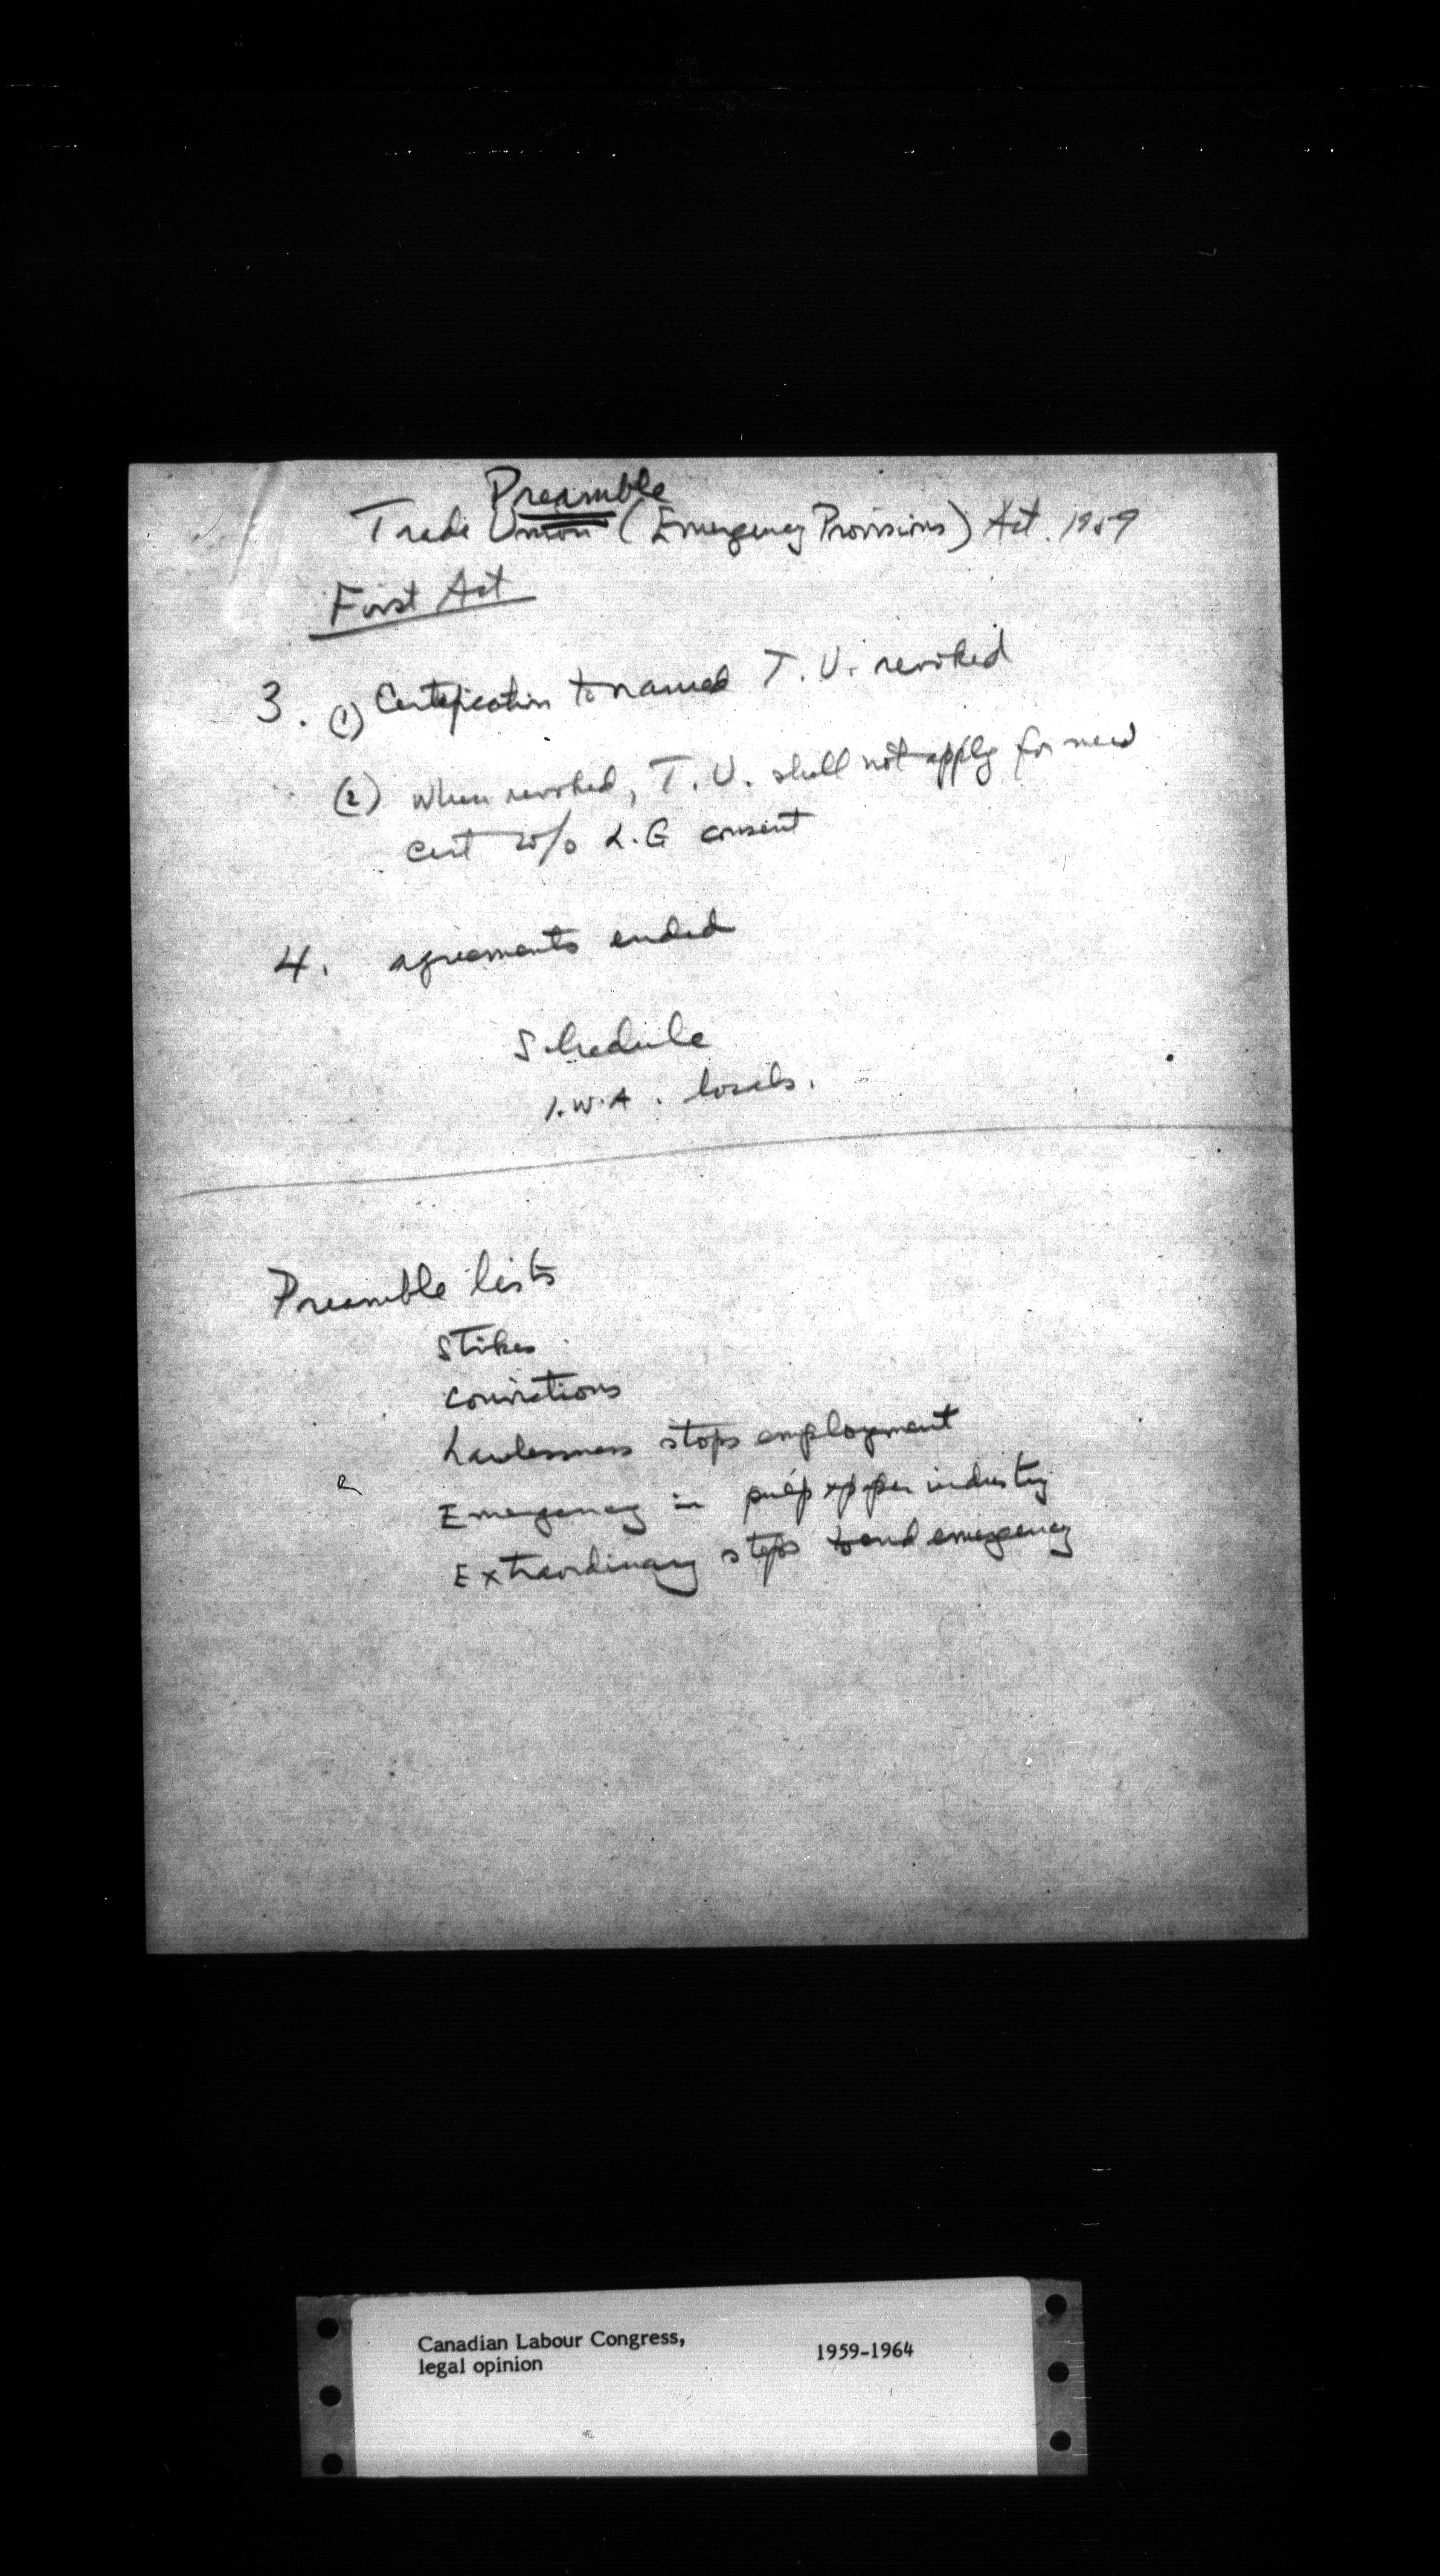 Preamble
Trade Union (Emergency Provisions) Act. 1959
First Act
3. (1) Certification to named T.U. revoked
(2) When revoked, T.U. shall not apply for new
cert w/o L.G consent
4. agreements ended
Schedule
I.W.A. locals.
Preamble lists
Strikes
Convictions
Lawlessness stops employment
Emergency in pulp & paper industry
Extraordinary steps to end emergency
Canadian Labour Congress, 1959-1964
legal opinion